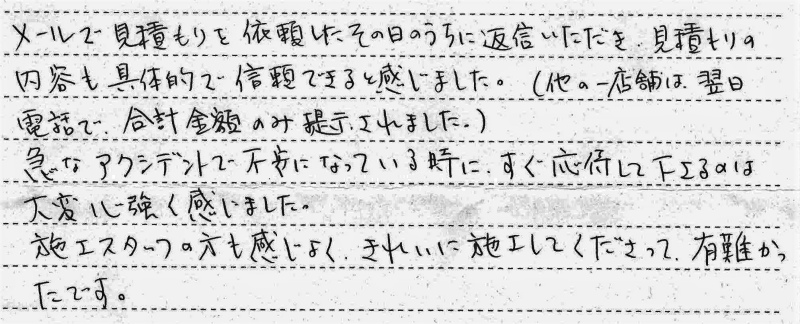 メールで見積もりを依頼したその日のうちに返信いただき、見積もりの
内容も具体的で信頼できると感じました。(他の一店舗は、翌日
電話で、合計金額のみ提示されました。)
急なアクシデントで不安になっている時に、すぐ応待して下さるのは
大変心強く感じました。
施工スタッフの方も感じよく、きれいに施工してくださって、有難かっ
たです。